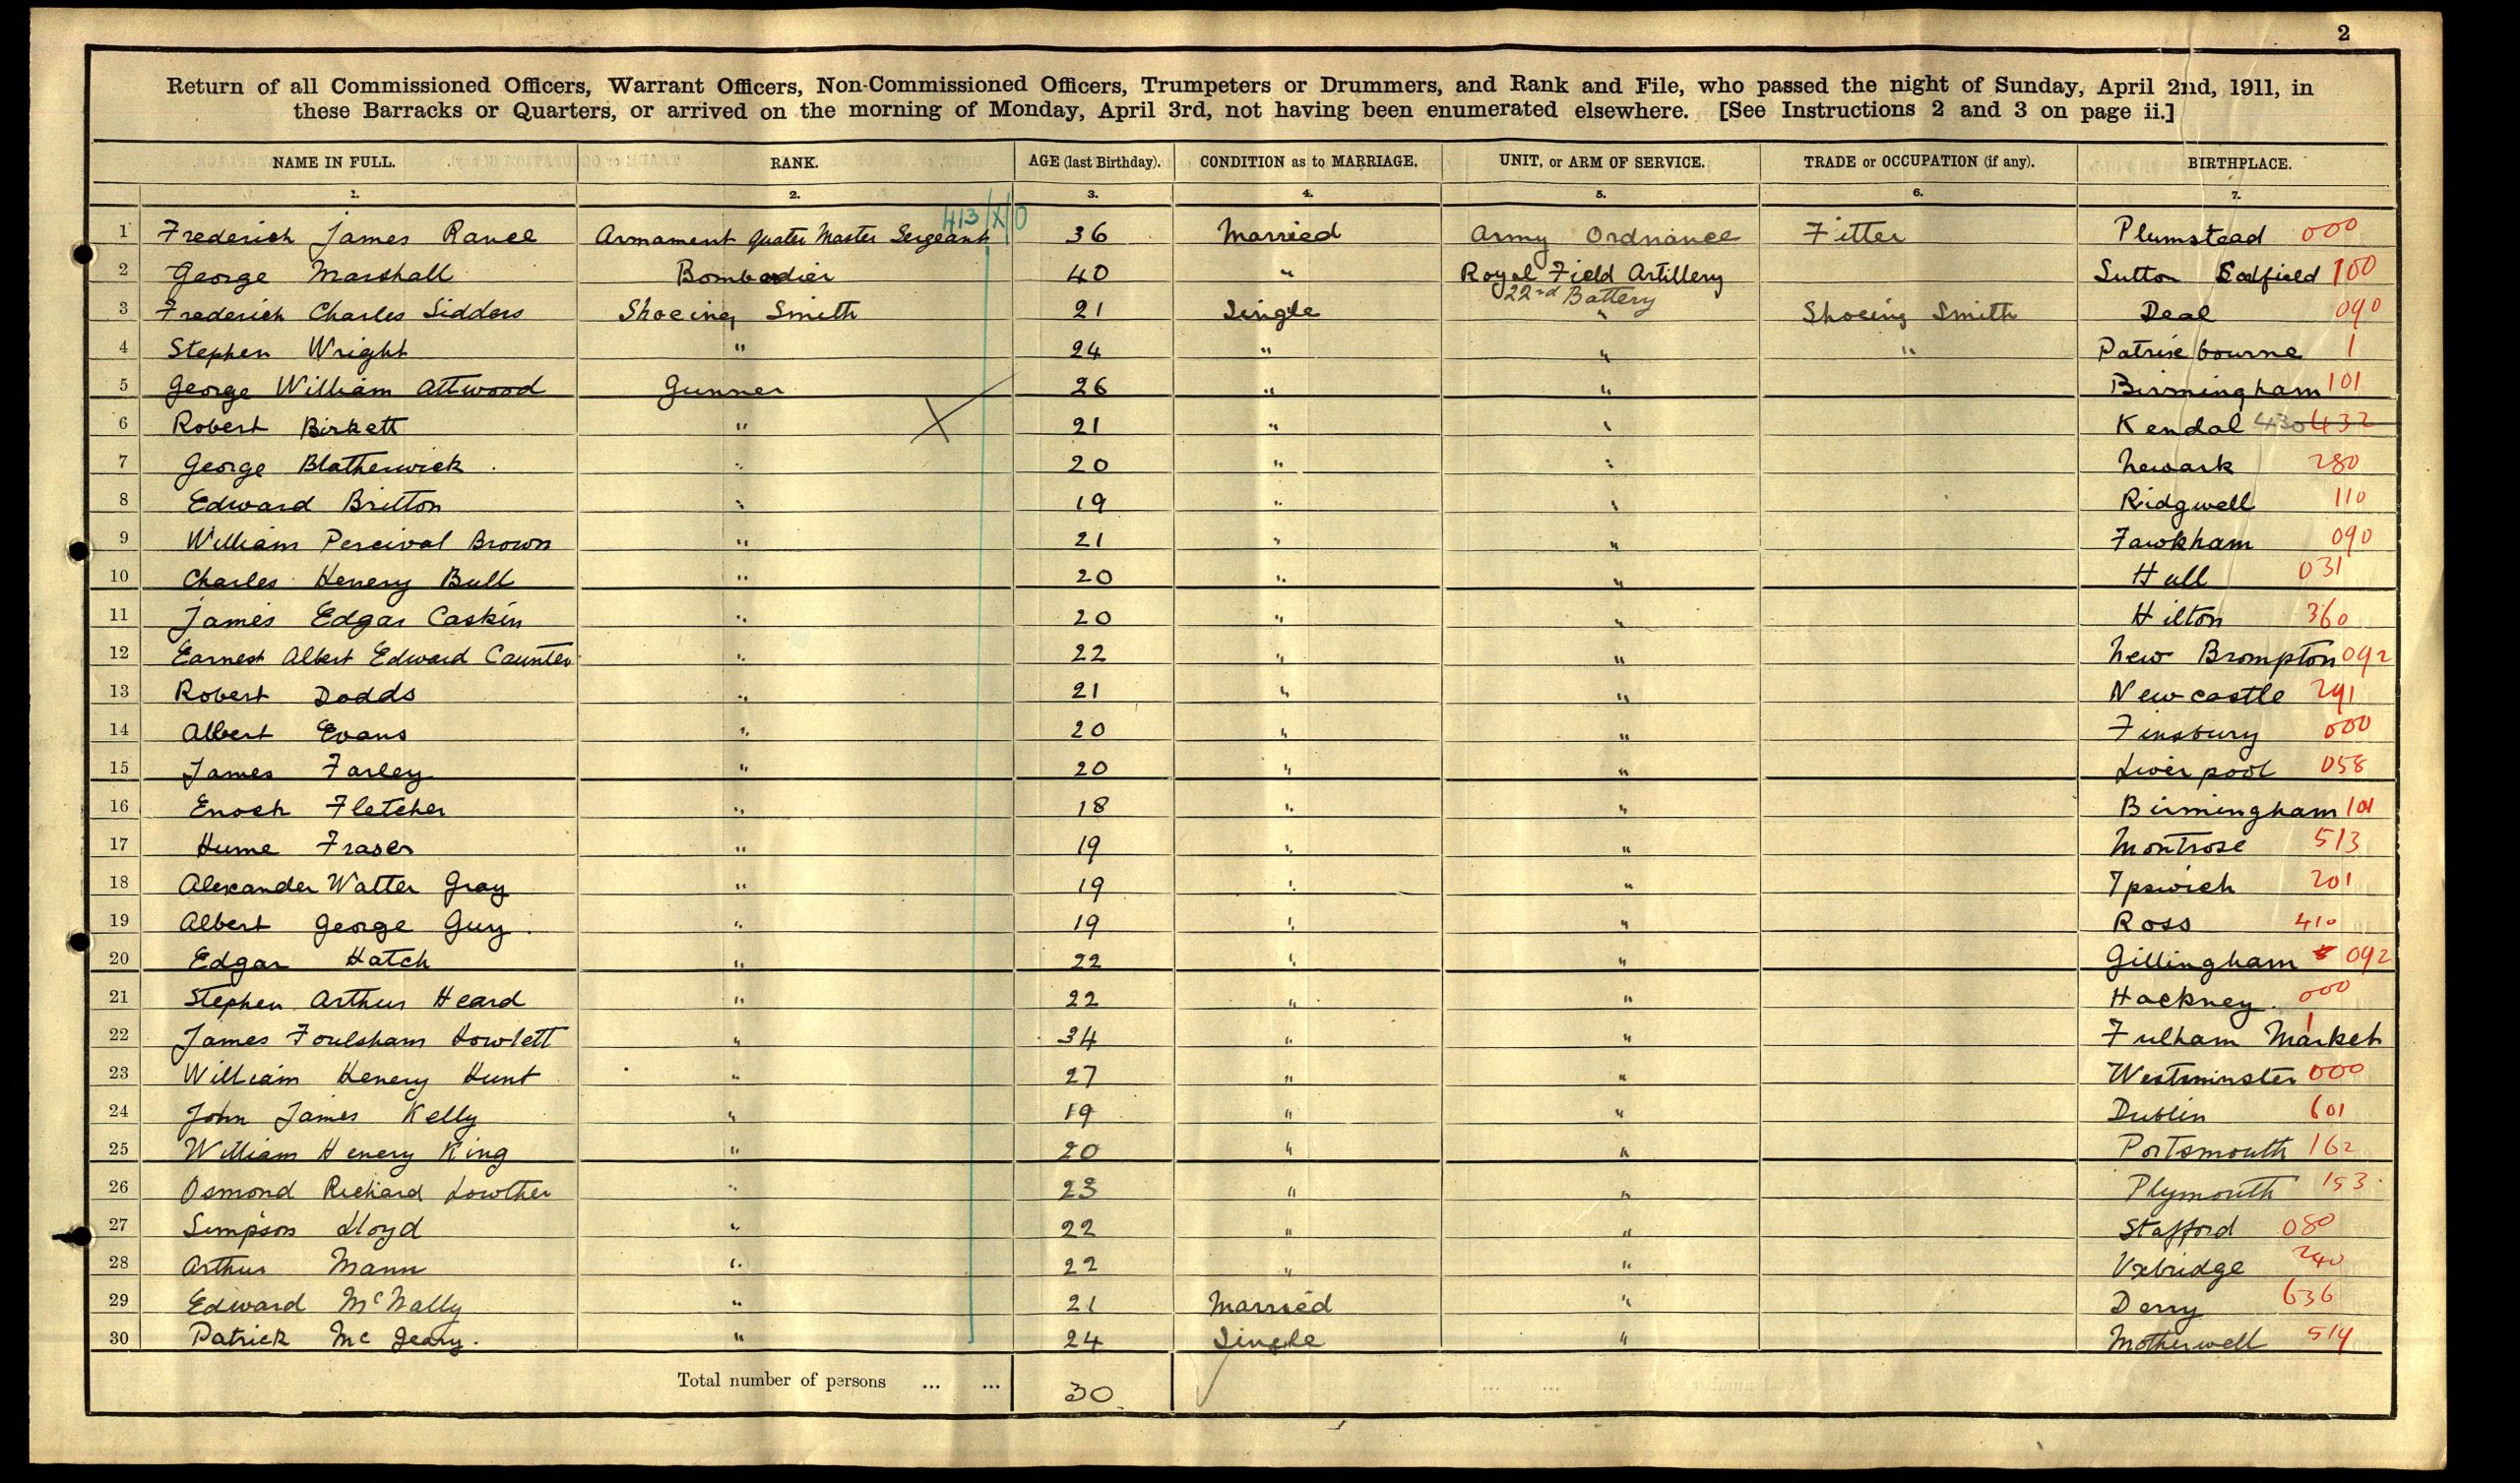 2
Return of all Commissioned Officers, Warrant Officers, Non-Commissioned Officers, Trumpeters or Drummers, and Rank and File, who passed the night of Sunday, April 2nd, 1911, in
these Barracks or Quarters, or arrived on the morning of Monday, April 3rd, not having been enumerated elsewhere. [See Instructions 2 and 3 on page ii.]
NAME IN FULL. RANK. AGE (last Birthday). CONDITION as to MARRIAGE. UNIT, or ARM OF SERVICE. TRADE or OCCUPATION (if any). BIRTHPLACE.
1. 2. 3. 4. 5. 6. 7.
413/X/0
1 Frederick James Rance Armament Quater Master Sergeant 36 Married Army Ordnance Fitter Plumstead 000
2 George Marshall Bombadier 40 " Royal Field Artillery Sutton 100
22nd Battery
3 Frederick Charles Sidders Shoeing Smith 21 Single " Shoeing Smith Deal 090
4 Stephen Wright " 24 " " " Patrixbourne 1
5 George William Attwood Gunner 26 " " Birmingham 101
6 Robert Birkett " 21 " " Kendal 430 432
7 George Blatherwick " 20 " " Newark 280
8 Edward Britton " 19 " " Ridgwell 110
9 William Percival Brown " 21 " " Fawkham 090
10 Charles Henery Bull " 20 " " Hull 031
11 James Edgar Caskin " 20 " " Hilton 360
12 Earnest Albert Edward Caunter " 22 " " New Brompton 092
13 Robert Dodds " 21 " " Newcastle 291
14 Albert Evans " 20 " " Finsbury 000
15 James Farley " 20 " " Liverpool 058
16 Enoch Fletcher " 18 " " Birmingham 101
17 Hume Fraser " 19 " " Montrose 513
18 Alexander Walter Gray " 19 " " Ipswich 201
19 Albert George Guy " 19 " " Ross 410
20 Edgar Hatch " 22 " " Gillingham 092
21 Stephen Arthur Heard " 22 " " Hackney 000
22 James Foulsham Howlett " 34 " " Fulham Market 1
23 William Henery Hunt " 27 " " Westminster 000
24 John James Kelly " 19 " " Dublin 601
25 William Henery King " 20 " " Portsmouth 162
26 Osmond Richard Lowther " 23 " " Plymouth 153
27 Simpson Lloyd " 22 " " Stafford 080
28 Arthur Mann " 22 " " Uxbridge 240
29 Edward McNally " 21 Married " Derry 636
30 Patrick Mc Geary. " 24 Single " Motherwell 514
Total number of persons ... ... 30